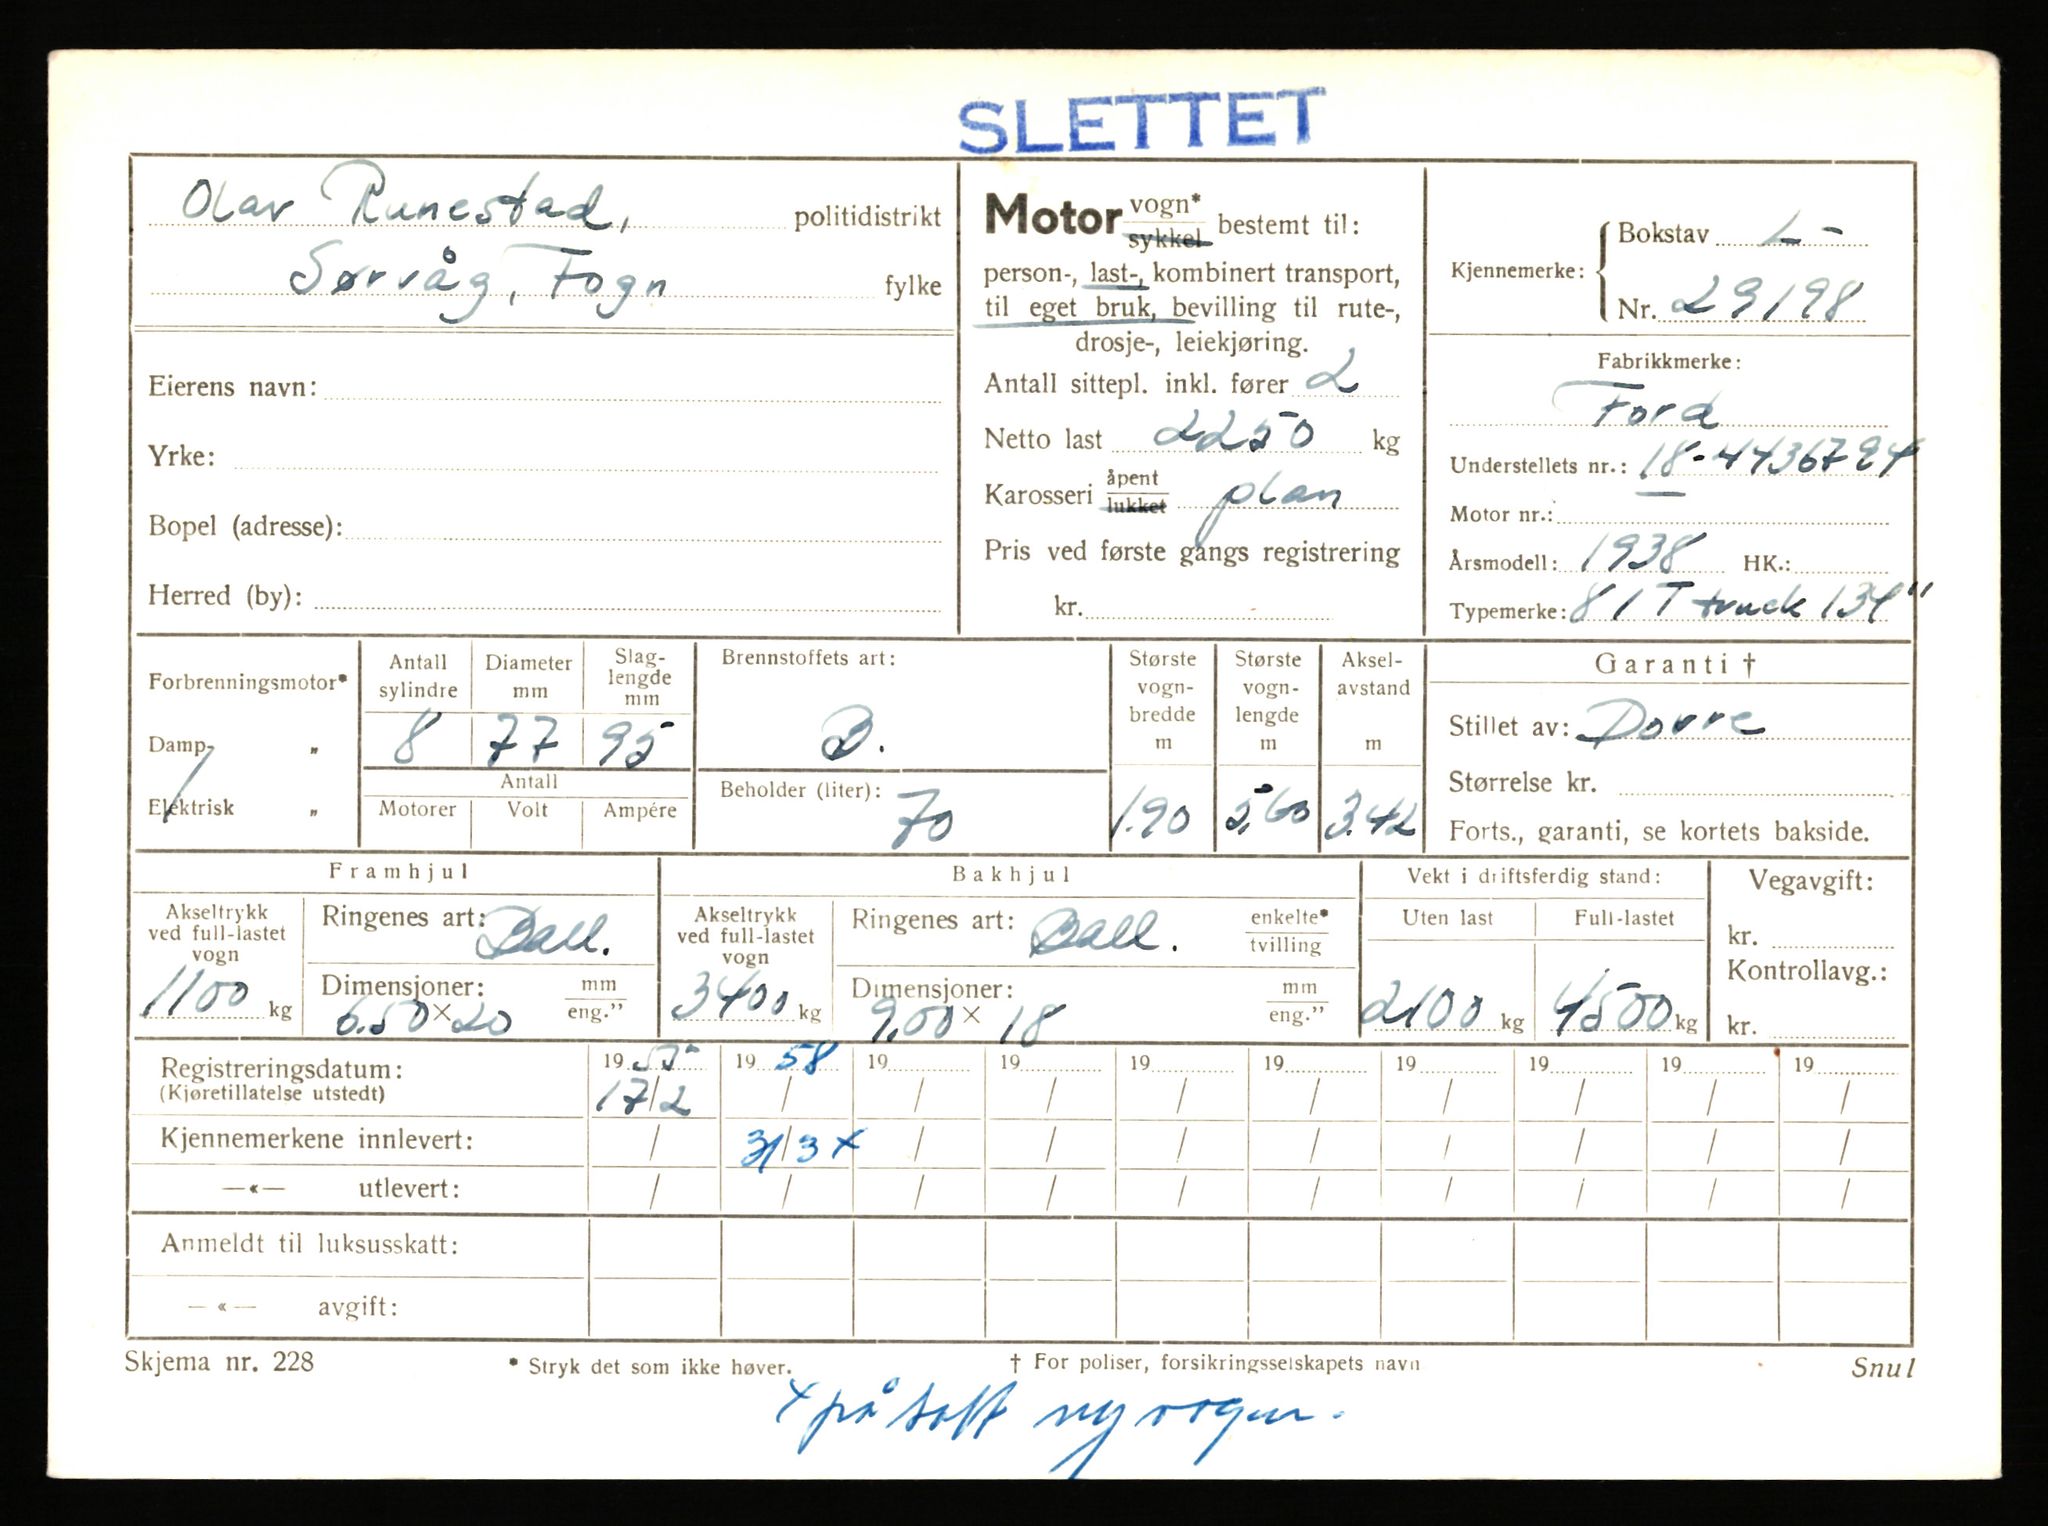 SLETTET
Olav Runestad, politidistrikt
Sørvåg, Fogn fylke
Eierens navn:
Yrke:
Bopel (adresse):
Herred (by):
Motor vogn* sykkel bestemt til:
person-, last-, kombinert transport,
til eget bruk, bevilling til rute-,
drosje-, leiekjøring.
Antall sittepl. inkl. fører 2
Netto last 2250 kg
Karosseri åpent lukket plan
Pris ved første gangs registrering
kr.
Kjennemerke: Bokstav L-
Nr. 29198
Fabrikkmerke:
Ford
Understellets nr.: 18-4436794
Motor nr.:
Årsmodell: 1938 HK.:
Typemerke: 81T truck 134"
Forbrenningsmotor*
Damp- "
Elektrisk "
Antall sylindre 8
Diameter mm 77
Slaglengde mm 95
Antall
Motorer Volt Ampére
Brennstoffets art:
B.
Beholder (liter): 70
Største vognbredde m 1.90
Største vognlengde m 5,60
Akselavstand m 3.42
Garanti †
Stillet av: Dovre
Størrelse kr.
Forts., garanti, se kortets bakside.
Framhjul
Akseltrykk ved full-lastet vogn 1100 kg
Ringenes art: Ball.
Dimensjoner: 6.50 x 20 mm eng."
Bakhjul
Akseltrykk ved full-lastet vogn 3400 kg
Ringenes art: Ball. enkelte* tvilling
Dimensjoner: 9,00 x 18 mm eng."
Vekt i driftsferdig stand:
Uten last 2100 kg
Full-lastet 4500 kg
Vegavgift:
kr.
Kontrollavg.:
kr.
Registreringsdatum: 19 55 19 58 19 19 19 19 19 19 19 19
(Kjøretillatelse utstedt) 17/2 / / / / / / / / /
Kjennemerkene innlevert: / 31/3 x / / / / / / / /
—«— utlevert: / / / / / / / / / /
Anmeldt til luksusskatt:
—«— avgift:
Skjema nr. 228 * Stryk det som ikke høver. † For poliser, forsikringsselskapets navn Snul
x påsatt ny vogn.